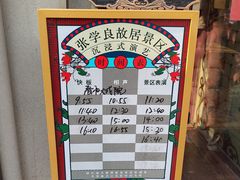 张学良故居景区
沉浸式演艺
时间表
快板 相声 景区表演
9:55 10:55 11:20
11:40 12:30 12:40
13:40 15:00 14:00
16:10 16:55 15:30
16:40